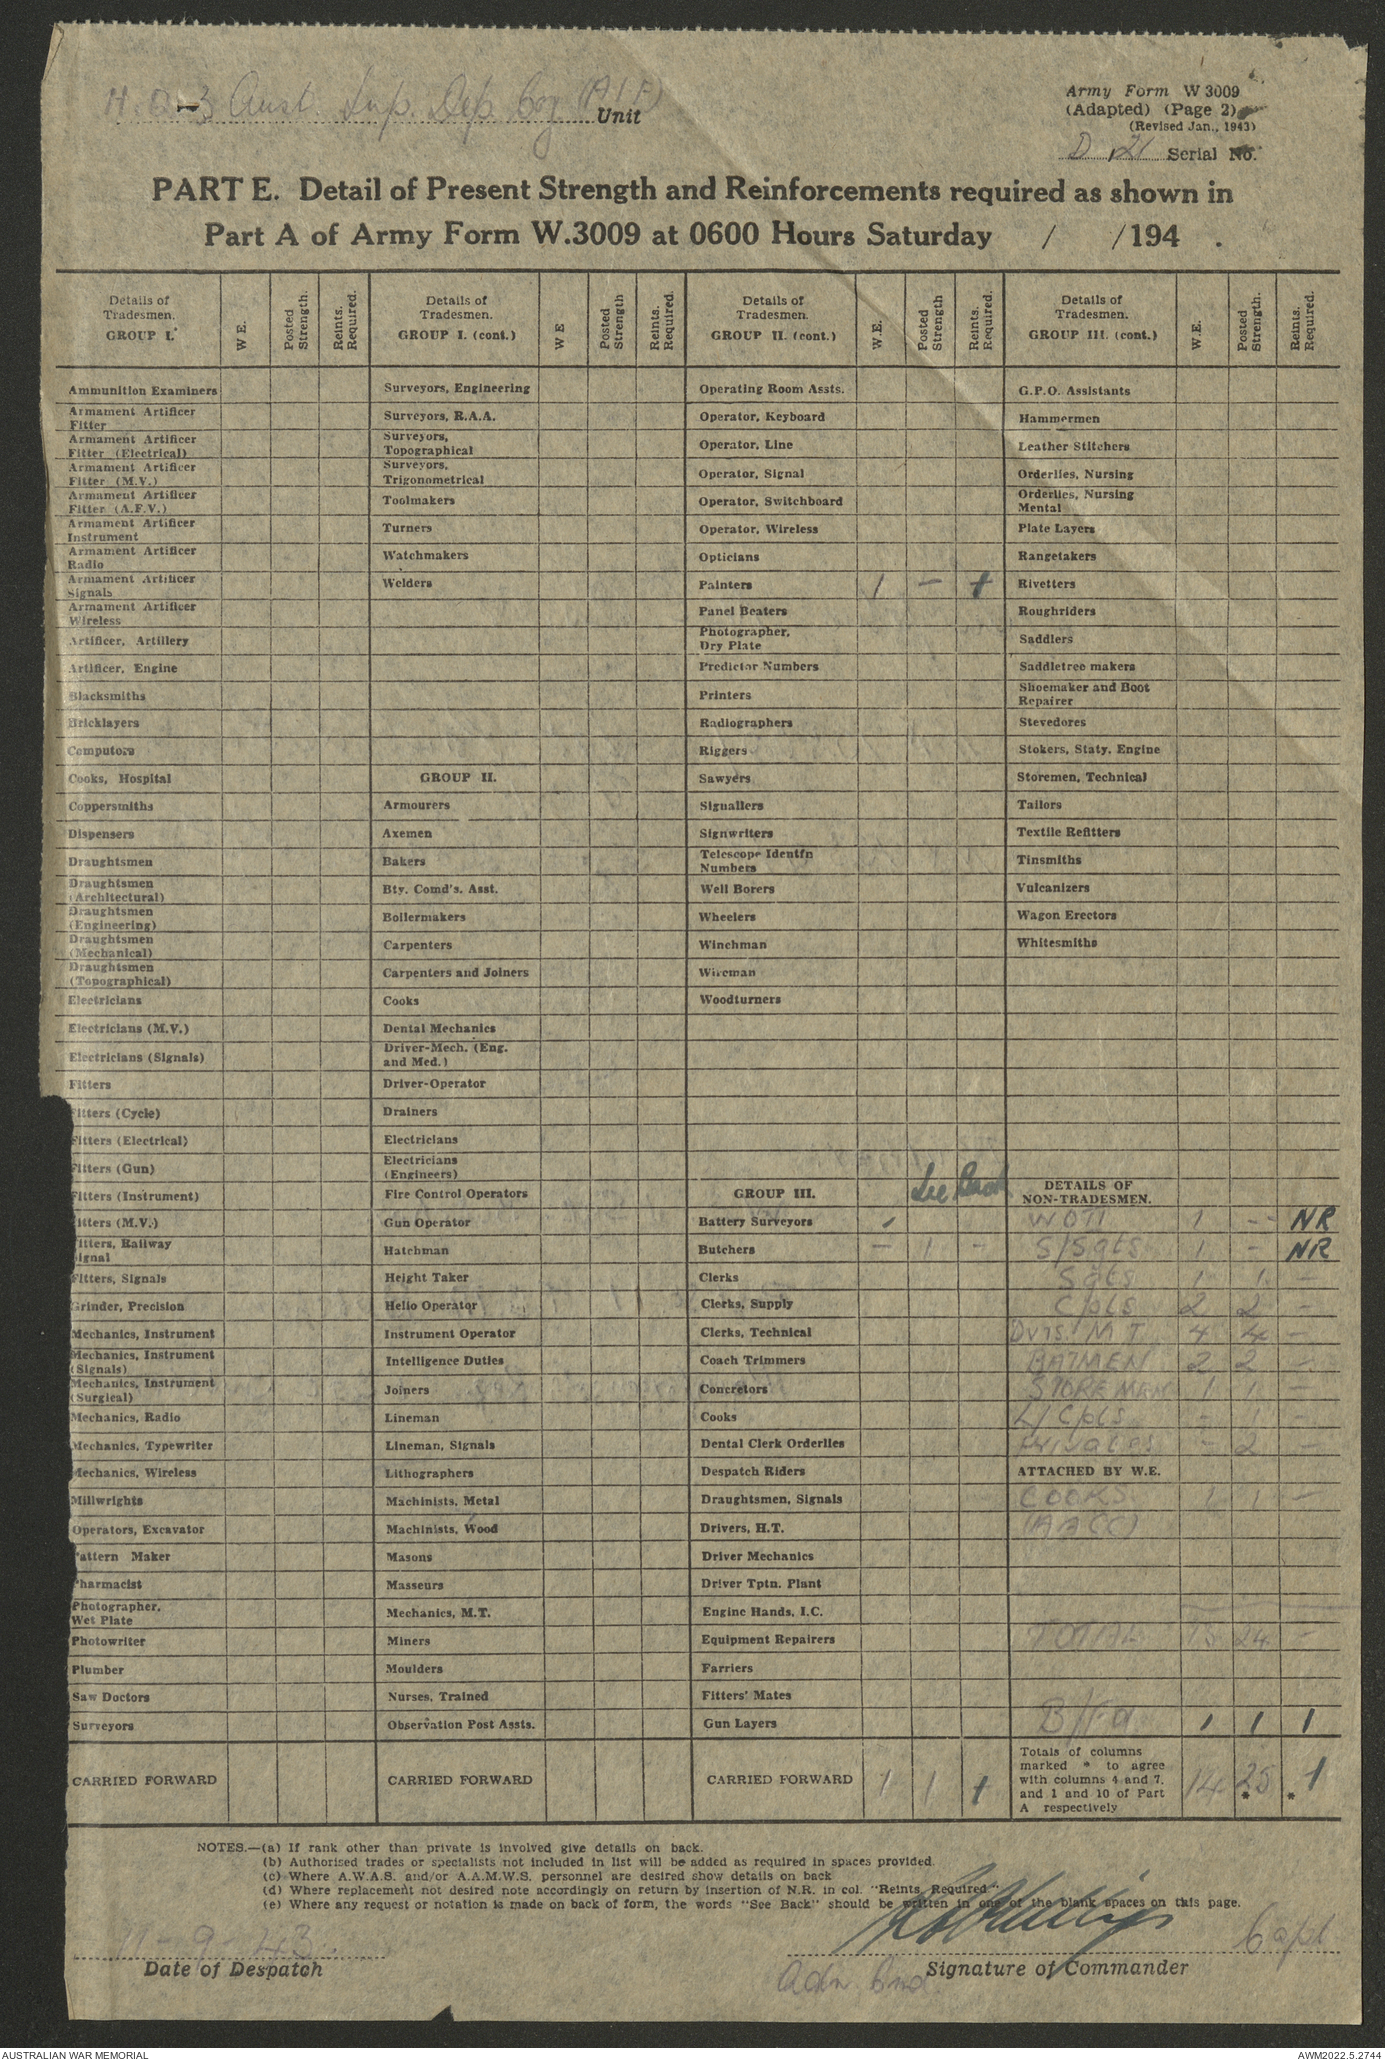 H.Q. 3 Aust. Sup. Dep. Coy (A I F) Unit
Army Form W 3009
(Adapted) (Page 2)
(Revised Jan., 1943)
D 21 Serial No.
PART E. Detail of Present Strength and Reinforcements required as shown in
Part A of Army Form W.3009 at 0600 Hours Saturday / /194 .
Details of Tradesmen. GROUP I. W E. Posted Strength. Reints. Required.
Details of Tradesmen. GROUP I. (cont.) W E Posted Strength Reints. Required.
Details of Tradesmen. GROUP II. (cont.) W.E. Posted Strength Reints. Required.
Details of Tradesmen. GROUP III. (cont.) W.E. Posted Strength. Reints. Required.
Ammunition Examiners
Armament Artificer
Fitter
Armament Artificer
Fitter (Electrical)
Armament Artificer
Fitter (M.V.)
Armament Artificer
Fitter (A.F.V.)
Armament Artificer
Instrument
Armament Artificer
Radio
Armament Artificer
Signals
Armament Artificer
Wireless
Artificer, Artillery
Artificer, Engine
Blacksmiths
Bricklayers
Computors
Cooks, Hospital
Coppersmiths
Dispensers
Draughtsmen
Draughtsmen
(Architectural)
Draughtsmen
(Engineering)
Draughtsmen
(Mechanical)
Draughtsmen
(Topographical)
Electricians
Electricians (M.V.)
Electricians (Signals)
Fitters
Fitters (Cycle)
Fitters (Electrical)
Fitters (Gun)
Fitters (Instrument)
itters (M.V.)
itters, Railway
ignal
Fitters, Signals
Grinder, Precision
Mechanics, Instrument
Mechanics, Instrument
(Signals)
Mechanics, Instrument
(Surgical)
Mechanics, Radio
Mechanics, Typewriter
Mechanics, Wireless
Millwrights
Operators, Excavator
Pattern Maker
Pharmacist
Photographer,
Wet Plate
Photowriter
Plumber
Saw Doctors
Surveyors
CARRIED FORWARD
Surveyors, Engineering
Surveyors, R.A.A.
Surveyors,
Topographical
Surveyors,
Trigonometrical
Toolmakers
Turners
Watchmakers
Welders
GROUP II.
Armourers
Axemen
Bakers
Bty. Comd's. Asst.
Boilermakers
Carpenters
Carpenters and Joiners
Cooks
Dental Mechanics
Driver-Mech. (Eng.
and Med.)
Driver-Operator
Drainers
Electricians
Electricians
(Engineers)
Fire Control Operators
Gun Operator
Hatchman
Height Taker
Helio Operator
Instrument Operator
Intelligence Duties
Joiners
Lineman
Lineman, Signals
Lithographers
Machinists, Metal
Machinists, Wood
Masons
Masseurs
Mechanics, M.T.
Miners
Moulders
Nurses, Trained
Observation Post Assts.
CARRIED FORWARD
Operating Room Assts.
Operator, Keyboard
Operator, Line
Operator, Signal
Operator, Switchboard
Operator, Wireless
Opticians
Painters 1 -
Panel Beaters
Photographer,
Dry Plate
Predictor Numbers
Printers
Radiographers
Riggers
Sawyers
Signallers
Signwriters
Telescope Identfn
Numbers
Well Borers
Wheelers
Winchman
Wireman
Woodturners
See Back
GROUP III.
Battery Surveyors
Butchers - 1 -
Clerks
Clerks, Supply
Clerks, Technical
Coach Trimmers
Concretors
Cooks
Dental Clerk Orderlies
Despatch Riders
Draughtsmen, Signals
Drivers, H.T.
Driver Mechanics
Driver Tptn. Plant
Engine Hands, I.C.
Equipment Repairers
Farriers
Fitters' Mates
Gun Layers
CARRIED FORWARD 1 1
G.P.O. Assistants
Hammermen
Leather Stitchers
Orderlies, Nursing
Orderlies, Nursing
Mental
Plate Layers
Rangetakers
Rivetters
Roughriders
Saddlers
Saddletree makers
Shoemaker and Boot
Repairer
Stevedores
Stokers, Staty. Engine
Storemen, Technical
Tailors
Textile Refitters
Tinsmiths
Vulcanizers
Wagon Erectors
Whitesmiths
DETAILS OF
NON-TRADESMEN.
WOII 1 - NR
S/Sgts 1 - NR
Sgts 1 1 -
Cpls 2 2 -
Dvrs. M T 4 4 -
BATMEN 2 2 -
STOREMAN 1 1 -
L/Cpls - 1 -
Privates - 2 -
ATTACHED BY W.E.
COOKS 1 1 -
(AACC)
TOTAL 13 24 -
B/Fd 1 1 1
Totals of columns
marked * to agree
with columns 4 and 7,
and 1 and 10 of Part
A respectively
14 25 * * 1
NOTES.—(a) If rank other than private is involved give details on back.
(b) Authorised trades or specialists not included in list will be added as required in spaces provided.
(c) Where A.W.A.S. and/or A.A.M.W.S. personnel are desired show details on back
(d) Where replacement not desired note accordingly on return by insertion of N.R. in col. "Reints. Required."
(e) Where any request or notation is made on back of form, the words "See Back" should be written in one of the blank spaces on this page.
11-9-43. Capt
Date of Despatch
Adm Cmd Signature of Commander
AUSTRALIAN WAR MEMORIAL
AWM2022.5.2744